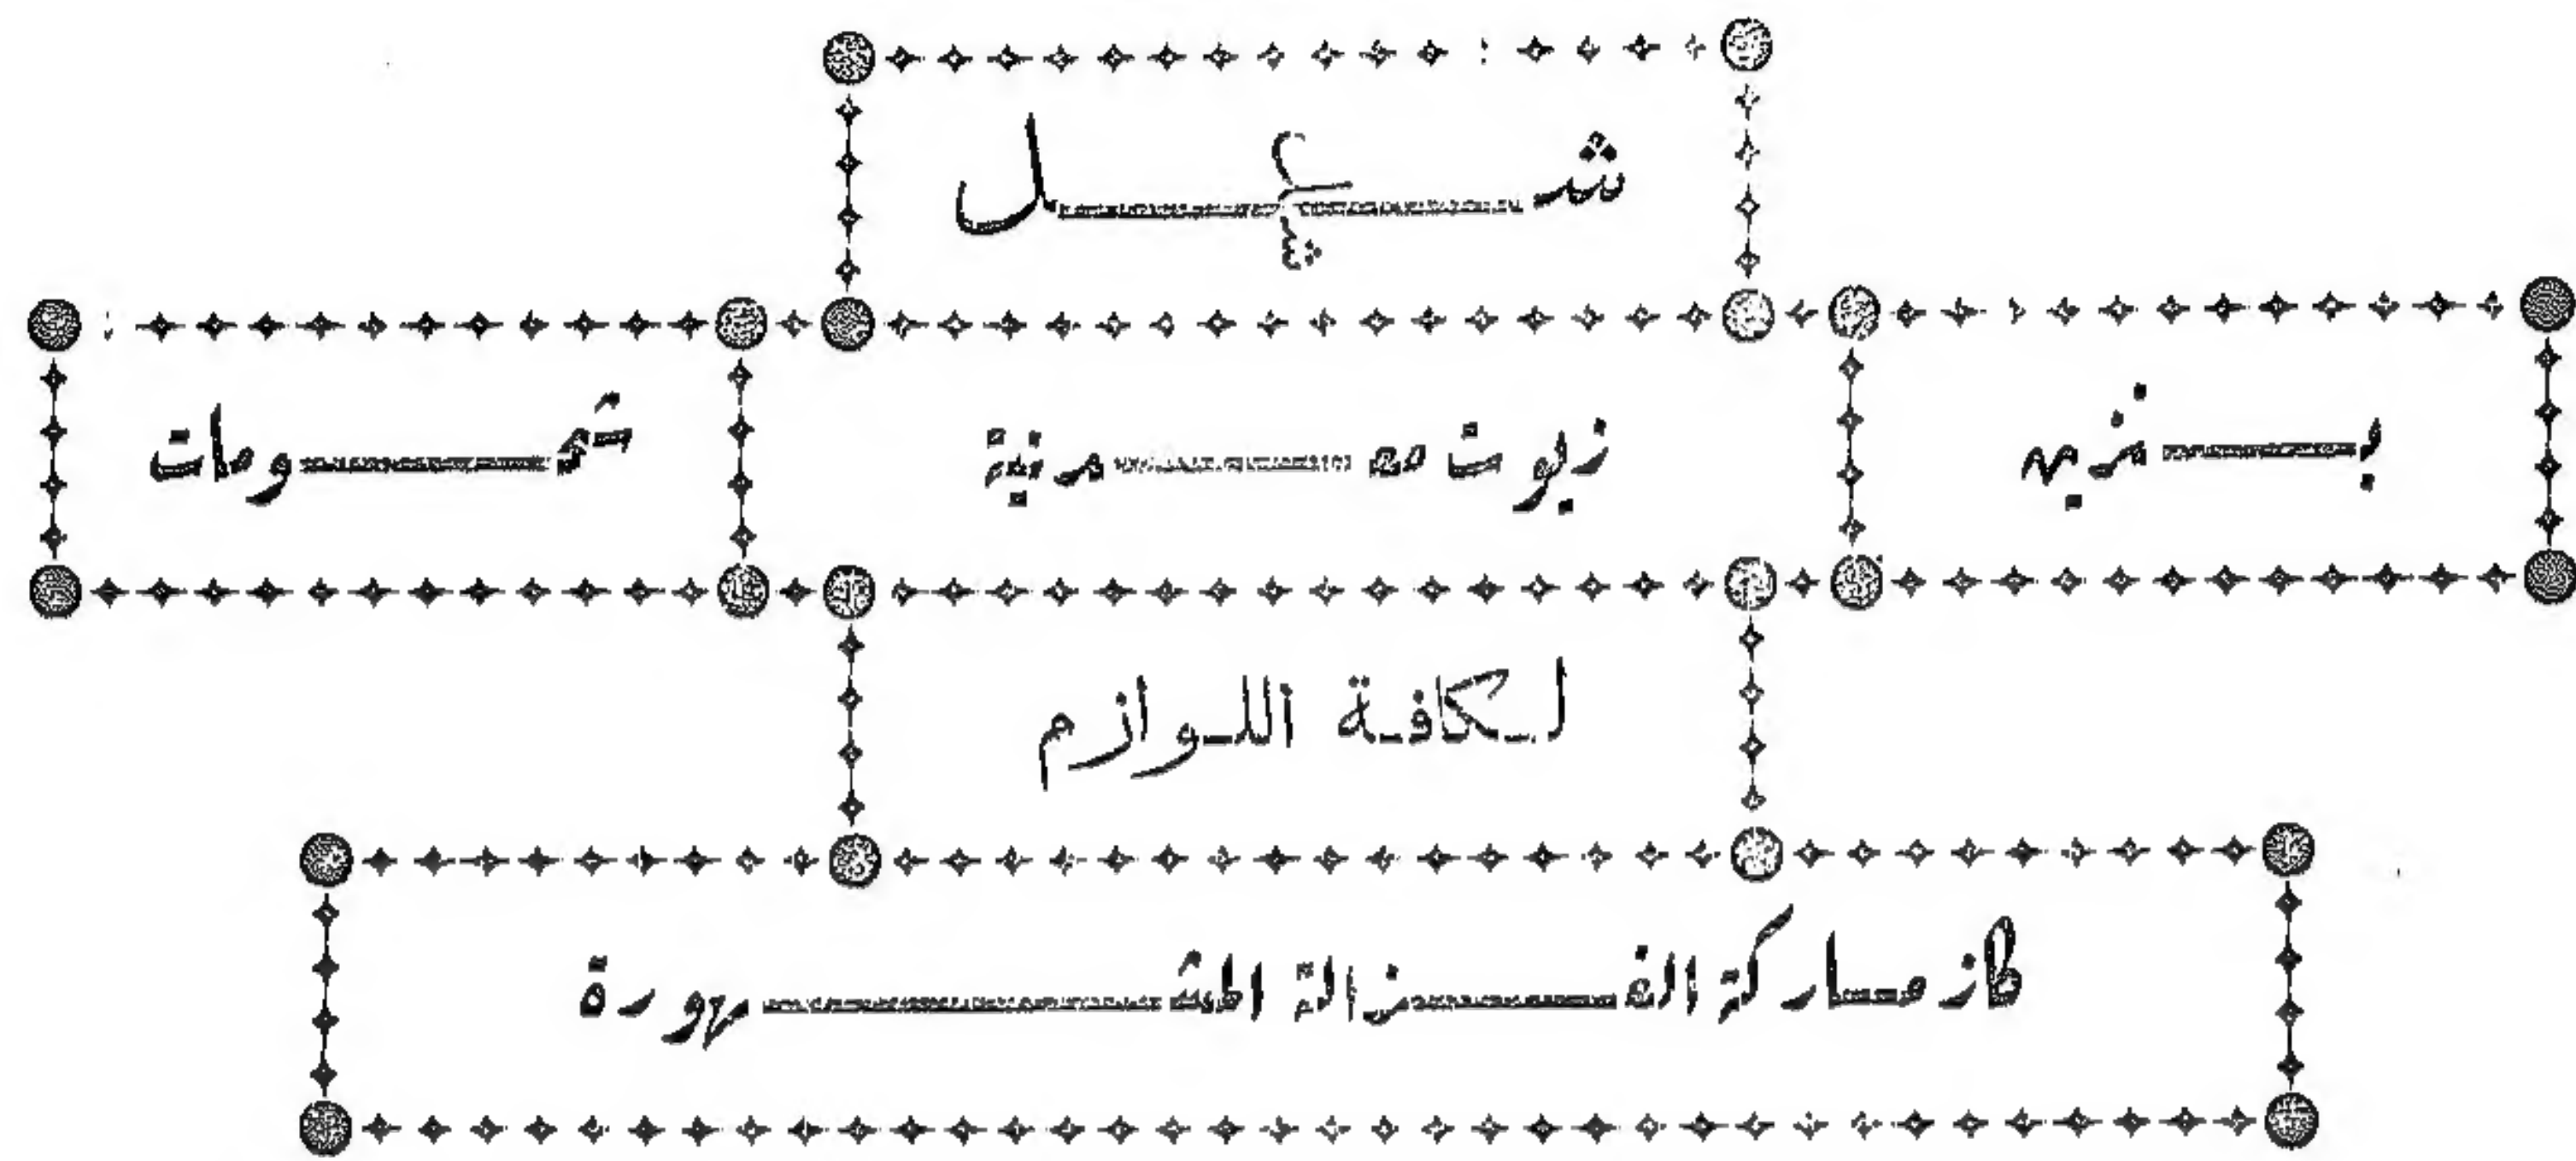 شل
بنزين
زيوت معدنية
شحومات
لكافة اللوازم
كاز ماركة الغزالة المشهورة